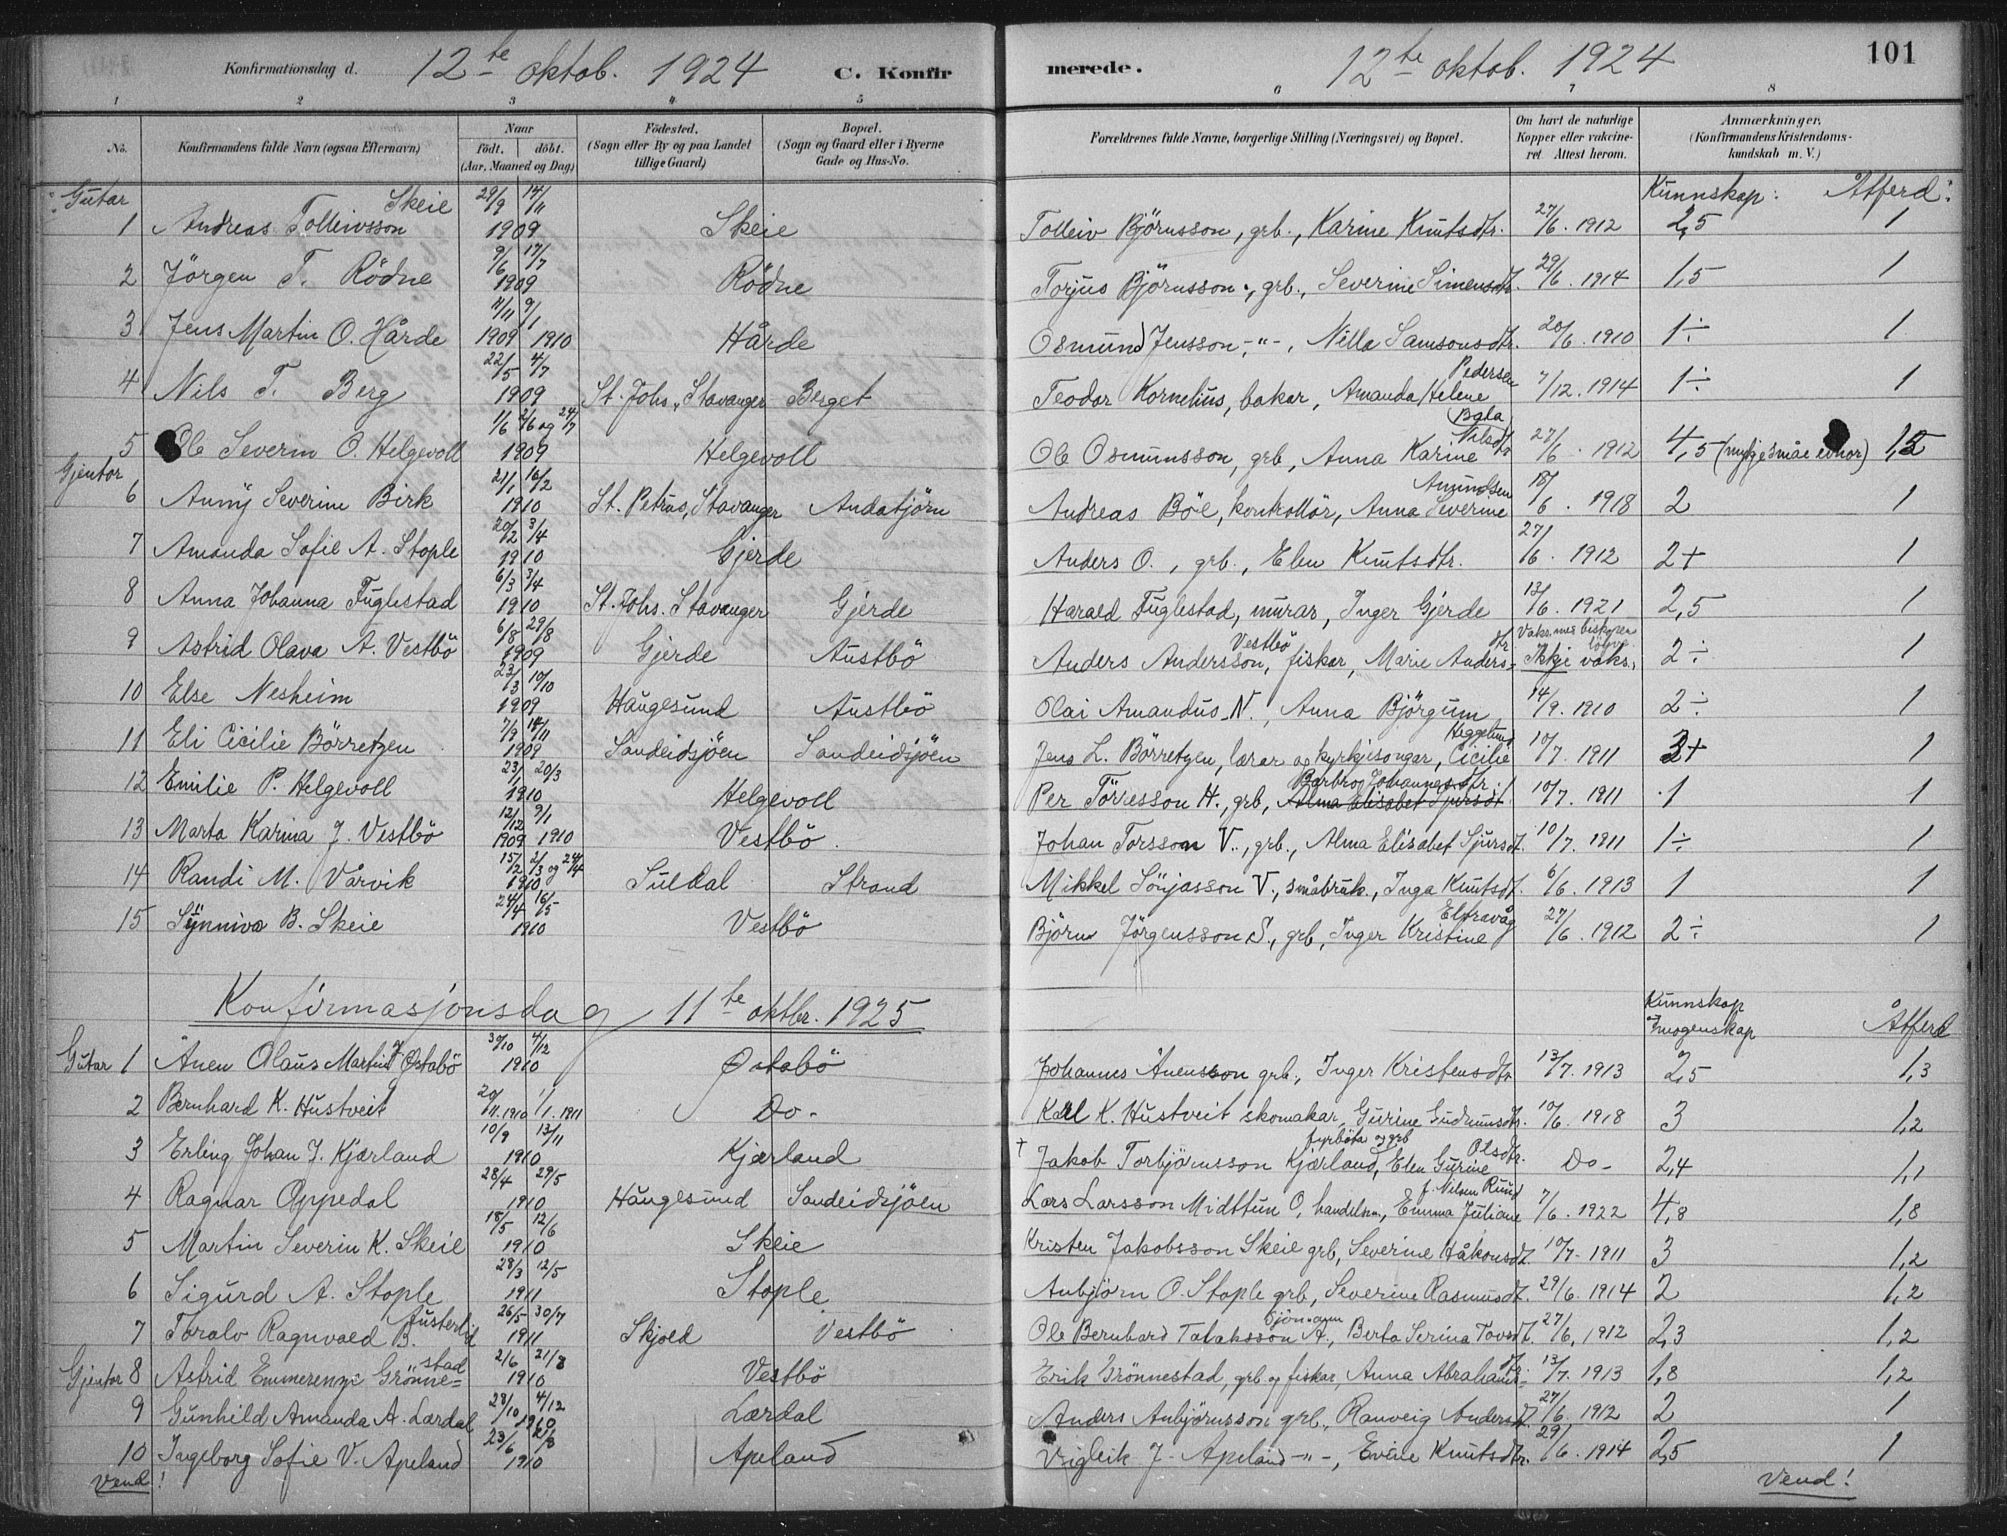 101
Konfirmationsdag d. 12te oktob. 1924 C. Konfirmerede. 12te oktob. 1924
1 2 3 4 5 6 7 8
No. Konfirmandens fulde Navn (ogsaa Efternavn) Naar født. døbt. (Aar, Maaned og Dag) Fødested. (Sogn eller By og paa Landet tillige Gaard) Bopæl. (Sogn og Gaard eller i Byerne Gade og Hus-No. Forældrenes fulde Navne, borgerlige Stilling (Næringsvei) og Bopæl. Om havt de naturlige Kopper eller vakcineret Attest herom. Anmærkninger. (Konfirmandens Kristendomskundskab m. V.)
Gutar Kunnskap: Åtferd:
1 Andreas Tolleivsson Skeie 29/9 14/11 1909 Skeie Tolleiv Björnsson, grb., Karine Knutsdtr. 27/6. 1912 2,5 1
2 Jörgen T. Rödne 9/6 17/7 1909 Rödne Torjus Björnsson, grb., Severine Simensdtr. 29/6. 1914 1,5 1
3 Jens Martin O. Hårde 11/11 1909 9/1 1910 Hårde Osmund Jensson, -"-, Nille Samsonsdtr. 20/6. 1910 1÷ 1
4 Nils T. Berg 22/5 4/7 1909 St. Johs., Stavanger Berget Teodor Kornelius, bakar, Amanda Helene Pedersen 7/12. 1914 1÷ 1
5 Ole Severin O. Helgevoll 1/6 2/6 og 24/7 1909 Helgevoll Ole Osmunsson, grb, Anna Karine Nilsdtr 27/6. 1912 4,5 (mykje småe evnor) 1,5
Gjentor
6 Anny Severine Birk 21/1 16/2 1910 St. Petrus, Stavanger Andatjörn Andreas Böe, kontrollör, Anna Severine Amundsen 18/6. 1918 2 1
7 Amanda Sofie A. Stople 20/2 3/4 1910 Gjerde Anders O., grb., Elen Knutsdtr. 27/6. 1912 2+ 1
8 Anna Johanna Fuglestad 6/3 3/4 1910 St. Johs. Stavanger Gjerde Harald Fuglestad, murar, Inger Gjerde 13/6. 1921 2,5 1
9 Astrid Olava A. Vestbö 6/8 29/8 1909 Gjerde Austbö Anders Andersson Vestbö, fiskar, Marie Andersdtr Vaks. med biskopens löyve Ikkje vaks. 2÷ 1
10 Else Nesheim 23/3 10/10 1909 Haugesund Austbö Olai Amandus N., Anna Björgum 14/9. 1910 2÷ 1
11 Eli Cicilie Börretzen 7/9 14/11 1909 Sandeidsjöen Sandeidsjöen Jens L. Börretzen, lærar og kyrkjesongar, Cicilie Heggelund 10/7. 1911 3+ 1
12 Emilie P. Helgevoll 23/1 20/3 1910 Helgevoll Per Törresson H., grb, Barbro Johannesdtr. Alma Elisabet Sjursdt. 10/7. 1911 1 1
13 Marta Karina J. Vestbö 12/12 1909 9/1 1910 Vestbö Johan Torsson V., grb., Alma Elisabet Sjursdt. 10/7. 1911 1÷ 1
14 Randi M. Vårvik 15/2 2/3 og 24/4 1910 Suldal Strand Mikkel Sönjasson V., småbruk., Inga Knutsdt. 6/6. 1913 1 1
15 Synniva B. Skeie 24/4 16/5 1910 Vestbö Björn Jörgensson S., grb, Inger Kristine Eltravåg 27/6. 1912 2÷ 1
Konfirmasjonsdag 11te oktbr. 1925 Kunnskap og mogenskap Åtferd
Gutar 1 Ånen Olaus Martin J. Östabö 30/10 4/12 1910 Östabö Johannes Ånensson grb., Inger Kristensdtr 13/7. 1913 2,5 1,3
2 Bernhard K. Hustveit 20/11. 1910 1/1. 1911 Do- Karl K. Hustveit skomakar, Gurine Gudmunsdtr. 10/6. 1918 3 1,2
3 Erling Johan J. Kjærland 10/9 13/11 1910 Kjærland † Jakob Torbjörnsson Kjærland, fyrböta og grb Elen Gurine Olsdtr. Do- 2,4 1,1
4 Ragnar Oppedal 28/4 29/5 1910 Haugesund Sandeidsjöen Lars Larsson Midttun O, handelsm., Emma Juliane f. Nilsen Ruud 7/6. 1922 4,8 1,8
5 Martin Severin K. Skeie 18/5 12/6 1910 Skeie Kristen Jakobsson Skeie grb, Severine Håkonsdt. 10/7. 1911 3 1,2
6 Sigurd A. Stople 28/3 12/5 1911 Stople Anbjörn O. Stople grb, Severine Rasmusdt. 29/6. 1914 2 1,2
7 Toralv Ragnvald B. Austerlid 26/5 30/7 1911 Skjold Vestbö Ole Bernhard Talaksson A., sjömann Berta Serina Tovsdt. 27/6, 1912 2,3 1,2
Gjentor 8 Astrid Emmerenze Grönnestad 2/6 21/8 1910 Vestbö Erik Grönnestad, grb og fiskar, Anna Abrahamsdtr. 13/7. 1913 1,8 1,2
9 Gunhild Amanda A. Lærdal 28/10 4/12 1910 Lærdal Anders Anbjörnsson grb., Ranveig Andersdt. 27/6. 1912 2 1
10 Ingeborg Sofie V. Apeland 23/6 21/8 1910 Apeland Vigleik J. Apeland -"-, Eveline Knutsdtr. 29/6. 1914 2,5 1
Vend! Vend!